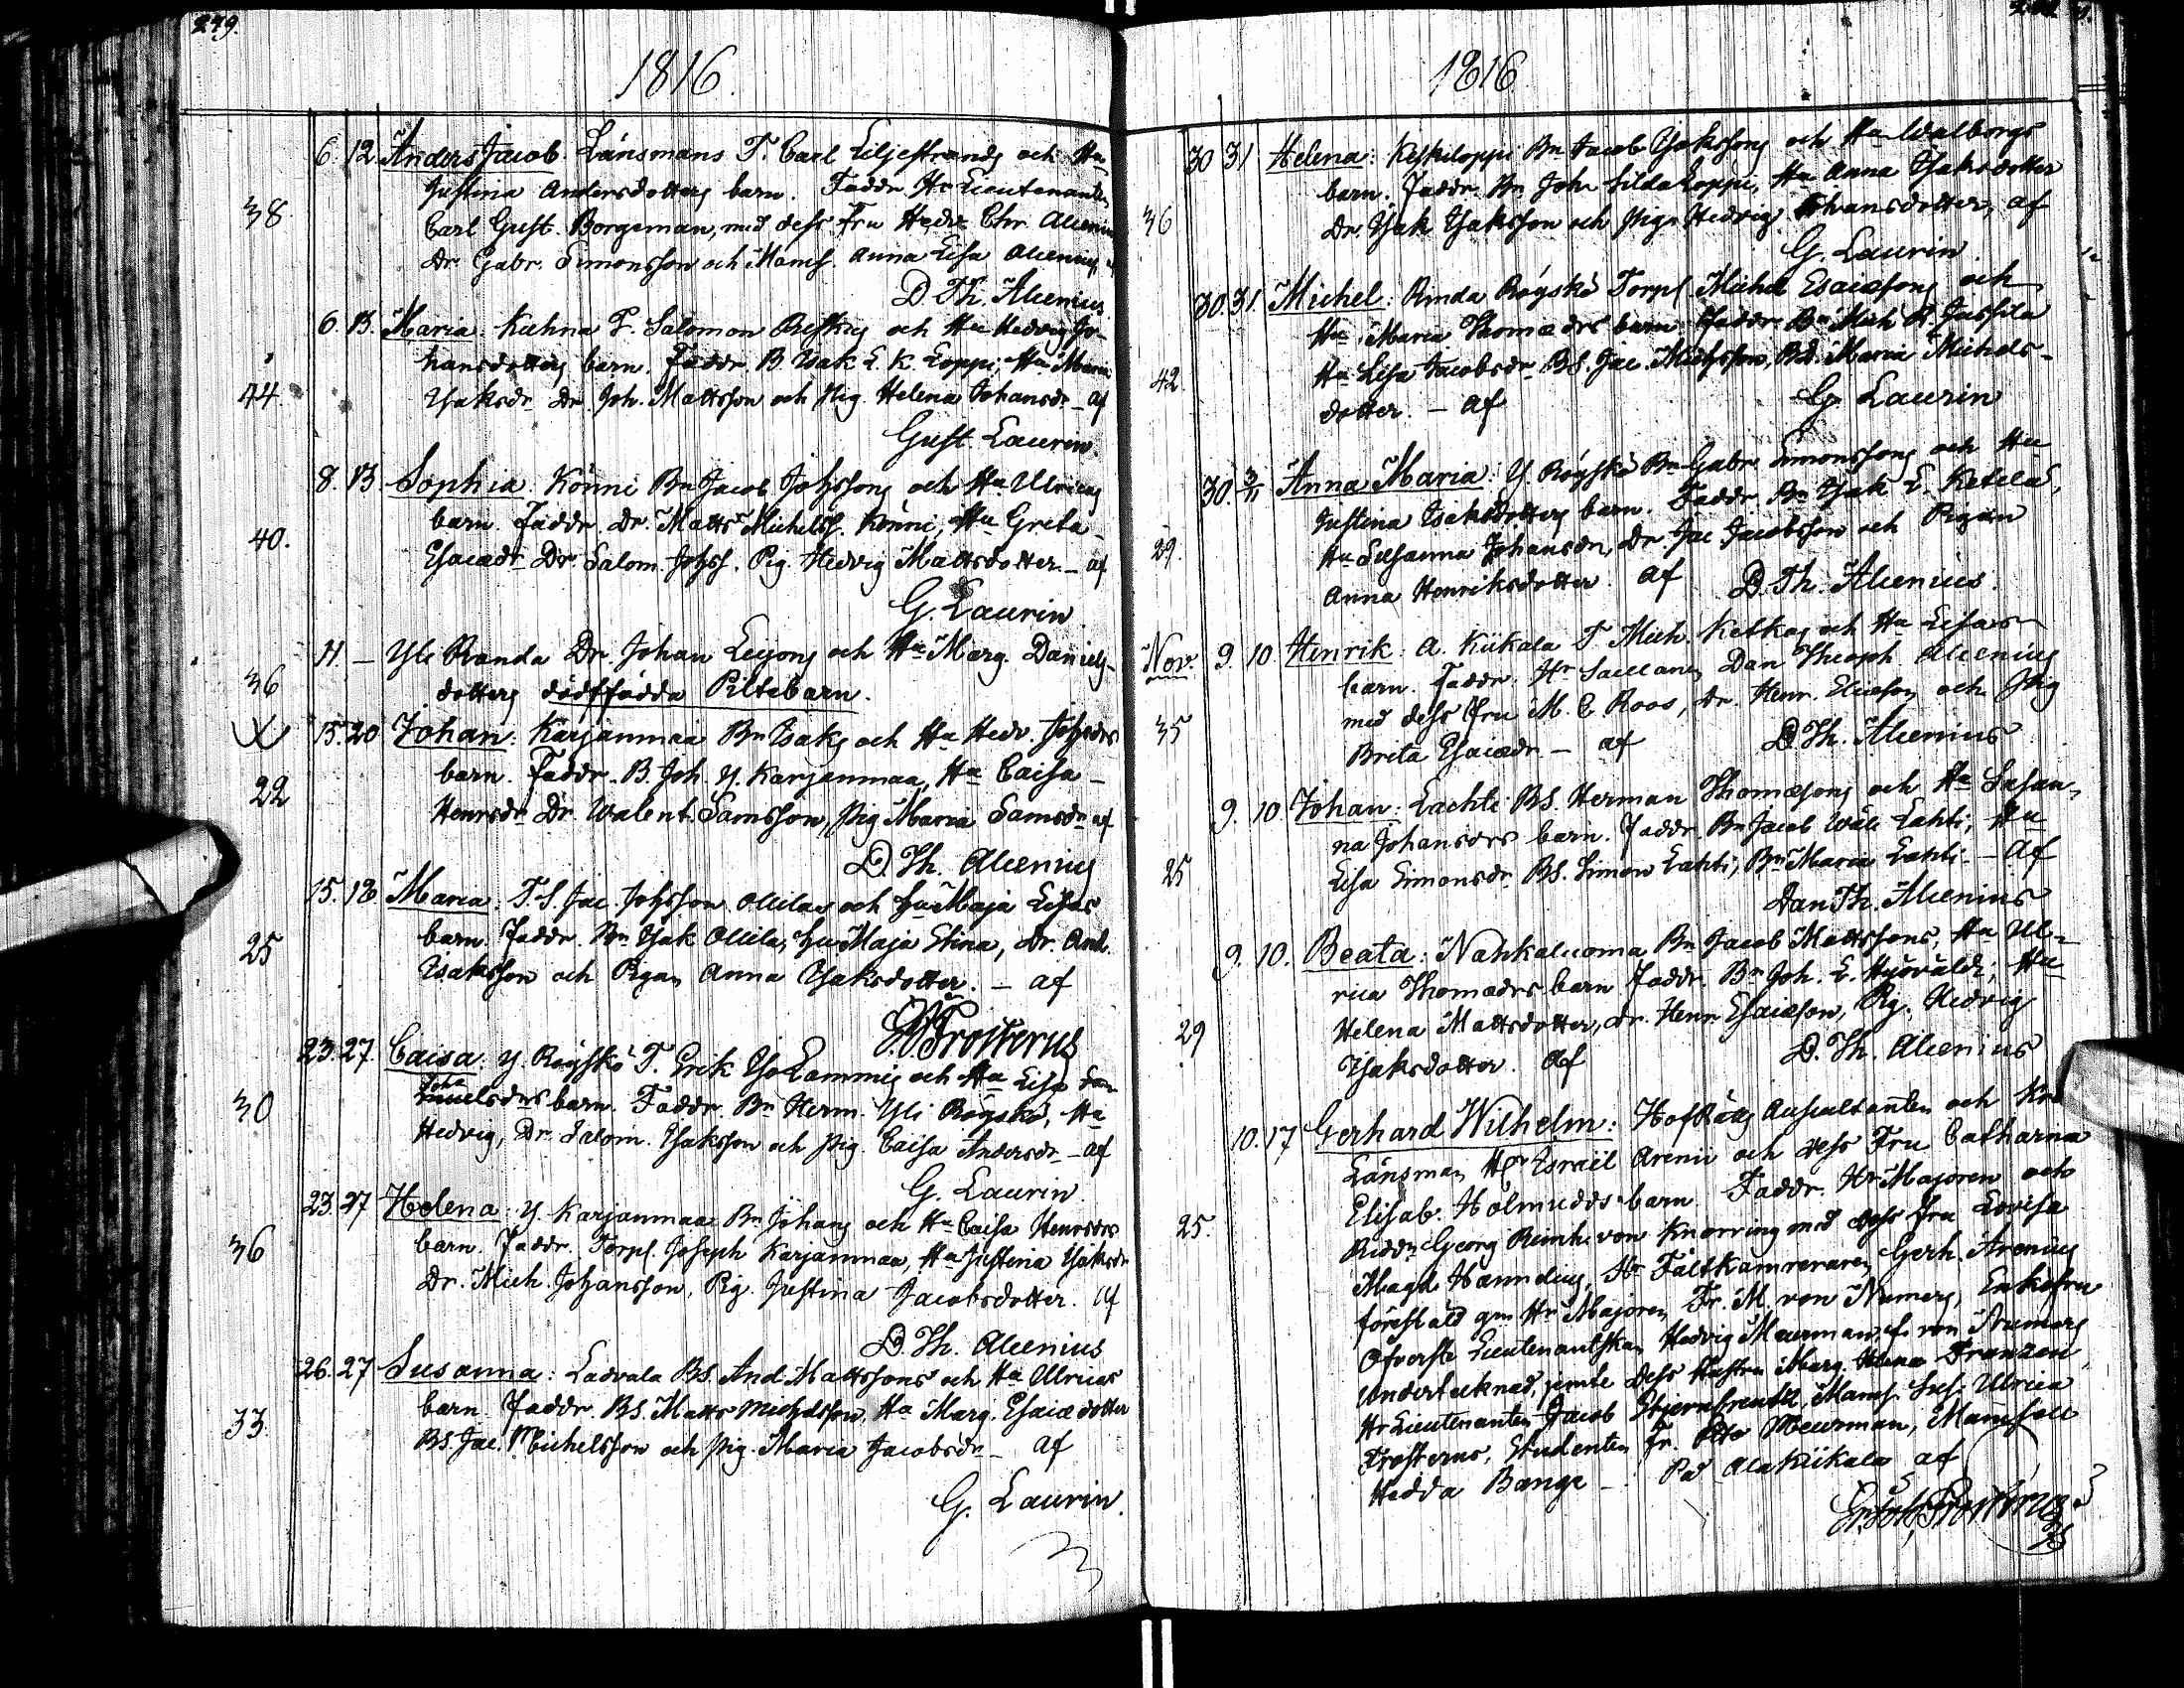 279.
1816.
6. 12 Anders Jacob. Länsmans T. Carl Liljestrands och Hu
Justina Andersdotters barn. Faddr. Hr Lieutenanten
38 Carl Gust. Borgeman, med dess Fru Hedv. Chr. Alcenius
Dr. Gabr. Simonsson och Mams. Anna Lisa Alcenius
D Th. Alcenius
6. 13. Maria. T. Salomon och Hu Hedvig Jo-
hansdotters barn. Faddr. B. Isak L. K. Loppi, Hu Maria
44. Isaksdr Dr Joh. Mattsson och Pig. Helena Johansdr - af
Gust. Laurin.
8. 13. Sophia. Könni Bn Jacob Johssons och Hu Ulricas
barn. Faddr. Dr. Matts Michelss. Könni, Hu Greta
40. Esaiædr Dr. Salom. Johss. Pig. Hedvig Mattsdotter - af
G. Laurin
11. - Yli Randa Dr. Johan och Hu Marg. Daniels-
36 dotters dödffödda Piltebarn.
15. 20 Johan: Karjanmaa Bn Isaks och Hu Hedv. Johsdrs
barn. Faddr. B. Joh. Y. Karjanmaa, Hu Caisa
22 Henrsdr Dr. Walent. Samsson, pig Maria Samsdr af
D. Th. Alcenius
15. 18 Maria. T. S. Jac. Johsson Ollilas och Hu Maja Lisas
barn. Faddr. Bn Isak Ollila, Hu Maja Stina, Dr. And.
25 Isaksson och Pigan Anna Isaksdotter. - af
Frosterus
23. 27. Caisa. Y. Röyskö T. Erik Iso Lammis och Hu Lisa
Joha
barn. Faddr. Bn Herm. Yli Röyskö, Hu
30 Hedvig, Dr. Salom. Isaksson och pig. Caisa Andersdr - af
G. Laurin.
23. 27 Helena: Y. Karjanmaa Bn Johans och Hu Caisa Henrsdrs
36 barn. Faddr. Torp. Joseph Karjanmaa, Hu Justina Isaksdr
Dr. Mich. Johansson, Pig. Justina Jacobsdotter. af
D. Th. Alcenius
26. 27 Susanna: Ladvala BS. And. Mattssons och Hu Ulricas
33. barn. Faddr. BS. Matts Michelsson, Hu Marg. Esaiædotter
BS. Jac. Michelsson och pig. Maria Jacobsdr - af
G. Laurin.
1816
30 31 Helena: Keskiloppi Bn Jacob Isakssons och Hu Walborgs
barn. Faddr. Bn Joh. Loppi, Hu Anna Isaksdotter
36 Dr. Isak Isaksson och Pigan Hedvig Johansdotter, af
G. Laurin.
30. 31. Michel: Röyskö Torp. Michel Esaiæsons och
Hu Maria Thomædrs barn. Faddr. Bn Mich. Jussila
42. Hu Lisa Jacobsdr BS. Jac. Michsson, BD. Maria Michels-
dotter. - af G. Laurin
30. 3/11 Anna Maria: Y. Röyskö Bn Gabr. Simonssons och Hu
Justina Isaksdotters barn. Faddr. Bn Isak L. Ketela,
29. Hu Susanna Johansdr, Dr. Jac. Jacobsson och Pigan
Anna Henriksdotter. af D. Th. Alcenius.
Nov. 9. 10 Henrik: A. Kiikala T. Mich. och Hu Lisas
barn. Faddr. Hr Dan Theoph. Alcenius
35 med dess Fru M. C. Roos, Dr. Henr. Eliæson och Pig
Brita Esaiædr. - af D. Th. Alcenius
9. 10 Johan: Lachti BS. Herman Thomæsons och Hu Susan-
na Johansdrs barn. Faddr. Bn Jacob Wäli Lahti, Hu
25 Lisa Simonsdr BS. Simon Lahti, Bn Maria Lahti - af
Dan Th. Alcenius
9. 10. Beata: Nahkaluoma Bn Jacob Mattssons, Hu Ul-
rica Thomædrs barn. Faddr. Bn Joh. L. Hyövälti, Hu
29 Helena Mattsdotter, Dr. Henr. Esaiæson, Pig. Hedvig
Isaksdotter. af D. Th. Alcenius
10. 17 Gerhard Wilhelm: HofRätts Auscultanten och
Länsman Hr Israël Arenii och dess Fru Catharina
Elisab. Holmudds barn. Faddr. Hr Majoren och
25. Ridd. Georg Reinh. von Knorring med dess Fru Lovisa
Magd. Hr Fältkamreraren Gerh. Arenius
föreståld gm Hr Majoren Fr. M. von Numers, Enkefru
Öfverste Lieutenantskan Hedvig Meurman, f. von Numers
Undertecknad, jemte dess Hustru Marg. Helena Franzen
Hr Lieutenanten Jacob Stjernbrandt, Mams. Ulrica
Frosterus, Studenten Fr. Otto Meurman, Mamsell
Hedda Bange -. På Alakiikala af
Frosterus